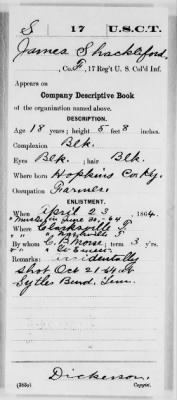 S 17 U.S.C.T.
James Shackliford
, Co. F, 17 Reg't U. S. Col'd Inf.
Appears on
Company Descriptive Book
of the organization named above.
DESCRIPTION.
Age 18 years; height 5 feet 8 inches.
Complexion Blk.
Eyes Blk.; hair Blk.
Where born Hopkins Co. Ky.
Occupation Farmer.
ENLISTMENT.
When April 23, 1864.
June 30-64
Where Clarksville T
" Nashville T
By whom C. B. Morse; term 3 y'rs.
Remarks: Accidentally
shot Oct 21 64 at
Sytles Bend, Tenn.
Dickerson.
(383g) Copyist.